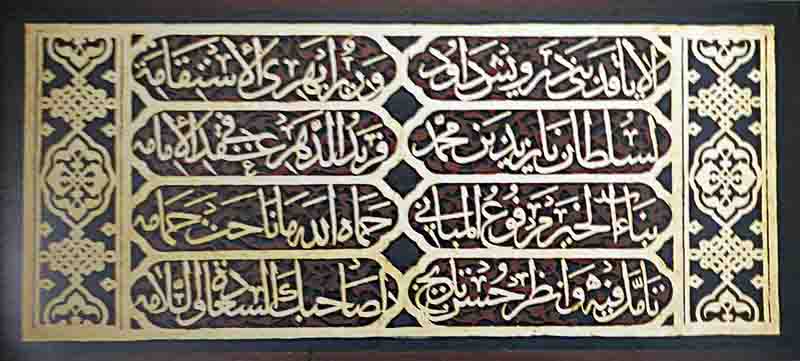 الا يا قد بنى درويش داود الاستقامة
لسلطان بايزيد بن محمد فريد الدهر في عقد الإمامه
بناء الخير مرفوع المباني حماه الله ما ناحت حمامه
تأمل فيه وانظر حسن تاريخ لصاحبك السعادة والسلامه